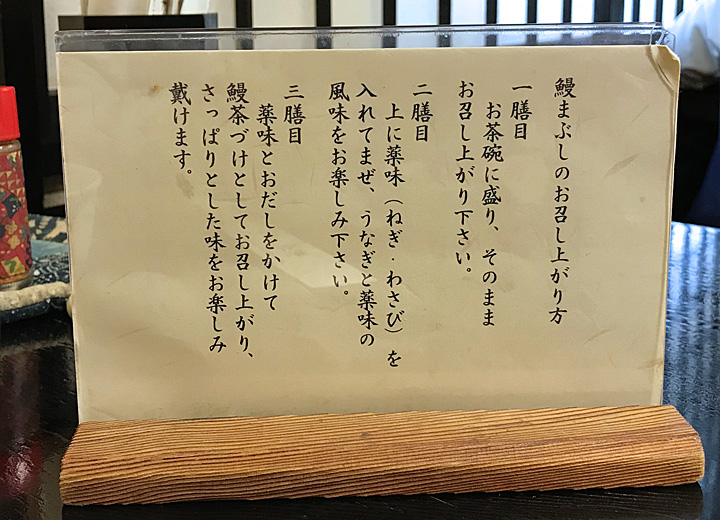 鰻まぶしのお召し上がり方
一膳目
お茶碗に盛り、そのまま
お召し上がり下さい。
二膳目
上に薬味（ねぎ・わさび）を
入れてまぜ、うなぎと薬味の
風味をお楽しみ下さい。
三膳目
薬味とおだしをかけて
鰻茶づけとしてお召し上がり、
さっぱりとした味をお楽しみ
戴けます。